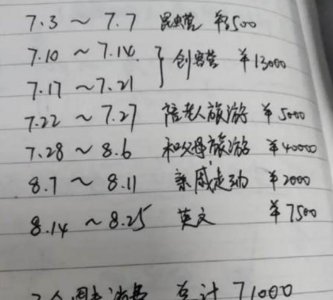 7.3 ～ 7.7 昆虫营 ¥3500
7.10 ～ 7.14 } 创客营 ¥13000
7.17 ～ 7.21
7.22 ～ 7.27 陪老人旅游 ¥5000
7.28 ～ 8.6 和父母旅游 ¥40000
8.7 ～ 8.11 亲戚走动 ¥2000
8.14 ～ 8.25 英文 ¥7500
总计 71000